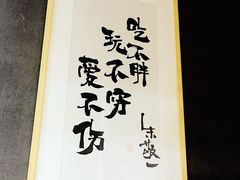 吃不胖
玩不穷
爱不伤